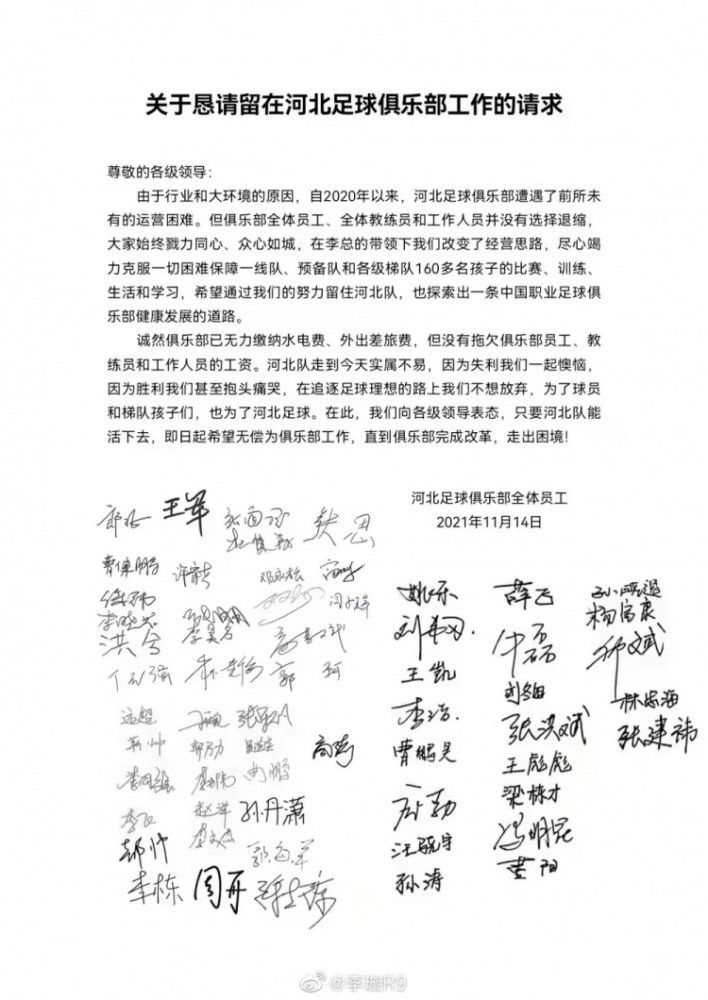 关于恳请留在河北足球俱乐部工作的请求
尊敬的各级领导：
由于行业和大环境的原因，自2020年以来，河北足球俱乐部遭遇了前所未
有的运营困难。但俱乐部全体员工、全体教练员和工作人员并没有选择退缩，
大家始终戮力同心、众心如城，在李总的带领下我们改变了经营思路，尽心竭
力克服一切困难保障一线队、预备队和各级梯队160多名孩子的比赛、训练、
生活和学习，希望通过我们的努力留住河北队，也探索出一条中国职业足球俱
乐部健康发展的道路。
诚然俱乐部已无力缴纳水电费、外出差旅费，但没有拖欠俱乐部员工、教
练员和工作人员的工资。河北队走到今天实属不易，因为失利我们一起懊恼，
因为胜利我们甚至抱头痛哭，在追逐足球理想的路上我们不想放弃，为了球员
和梯队孩子们，也为了河北足球。在此，我们向各级领导表态，只要河北队能
活下去，即日起希望无偿为俱乐部工作，直到俱乐部完成改革，走出困境！
河北足球俱乐部全体员工
2021年11月14日
王军
曹保鹏
郭珂
远超
高嵩
孙丹潇
李栋 周开
姚乐
王凯
李浩
曹鹏昊
汪晓宇
孙涛
薛飞
牛磊
张洪斌
王彪彪
梁栋才
冯明昆
杨富康
林忠海
张建祎
@李璇R9